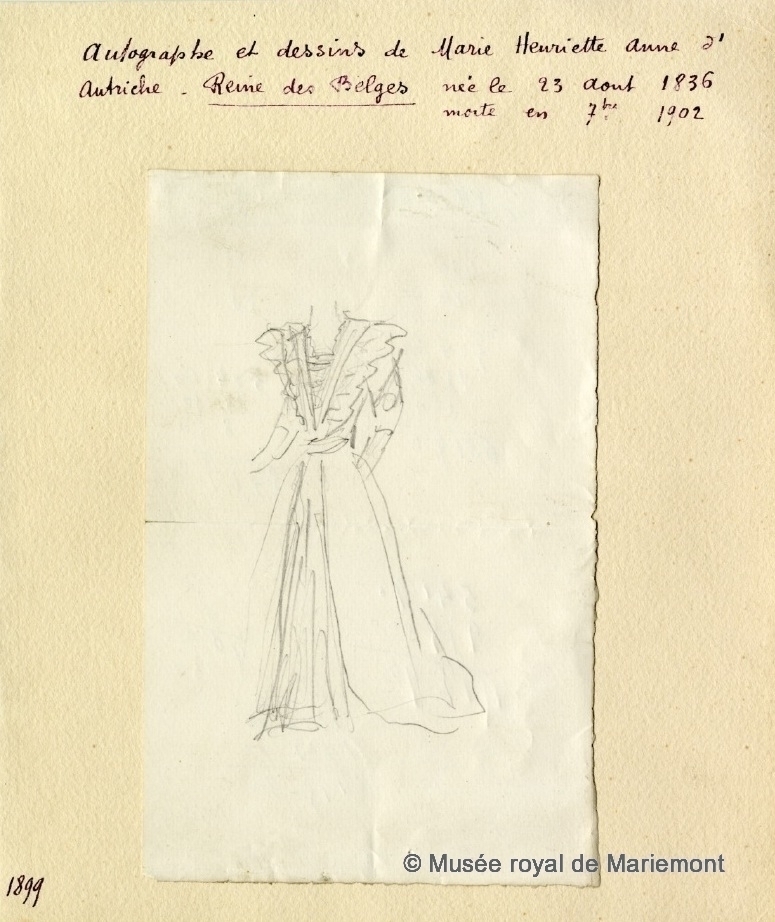 Autographe et dessins de Marie Henriette Anne d'
Autriche - Reine des Belges née le 23 aout 1836
morte en 7bre 1902
© Musée royal de Mariemont
1899